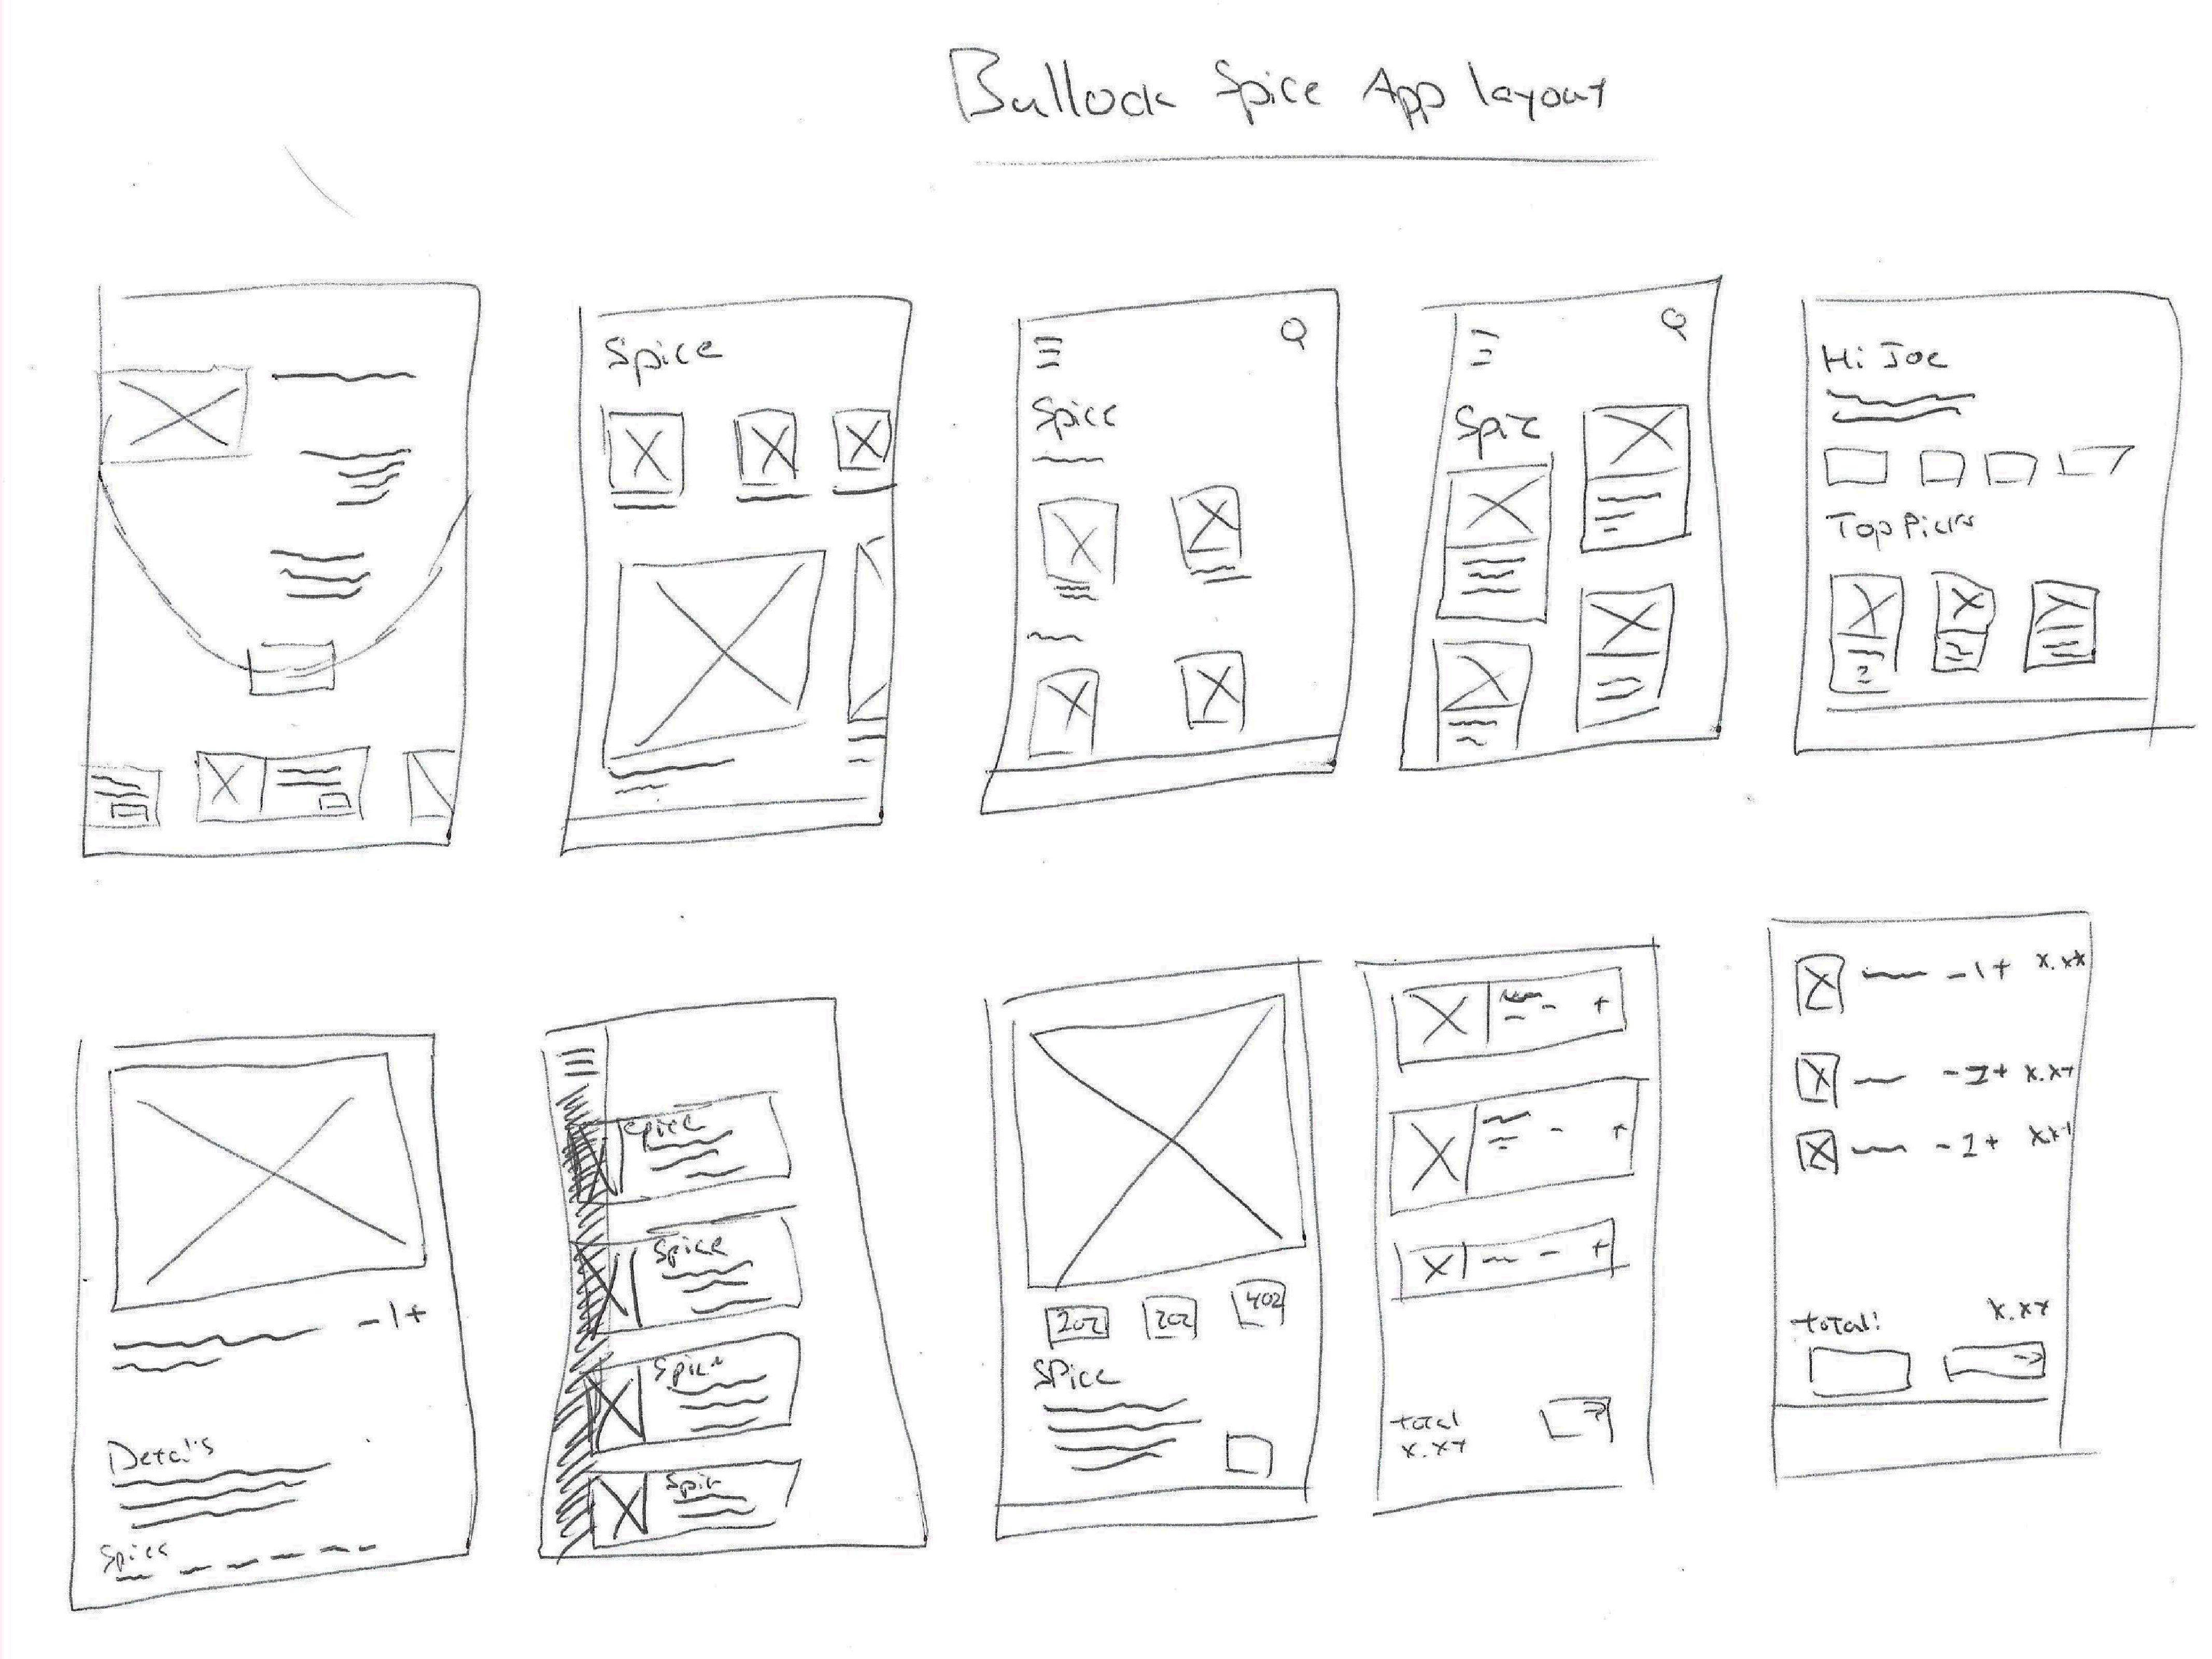 Bullock Spice App layout
Spice
Spice
Spic
Hi Joe
Top Picks
- 1 +
Details
Spices
Spice
Spice
Spice
Spic
2oz
2oz
4oz
Spice
- +
- +
- +
total
x.xx
- 1 + x.xx
- 1 + x.xx
- 1 + x.xx
total: x.xx